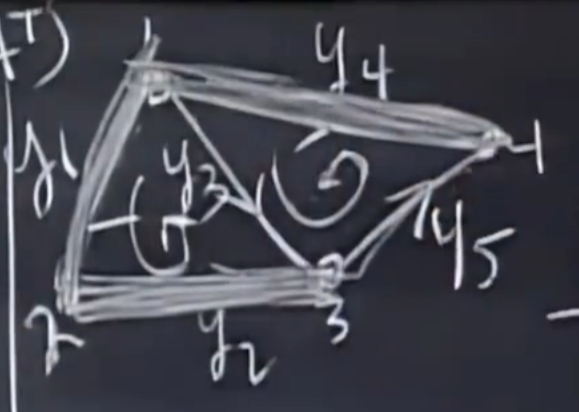 T)
1
y4
y1
y3
-1
y5
2
y2
3